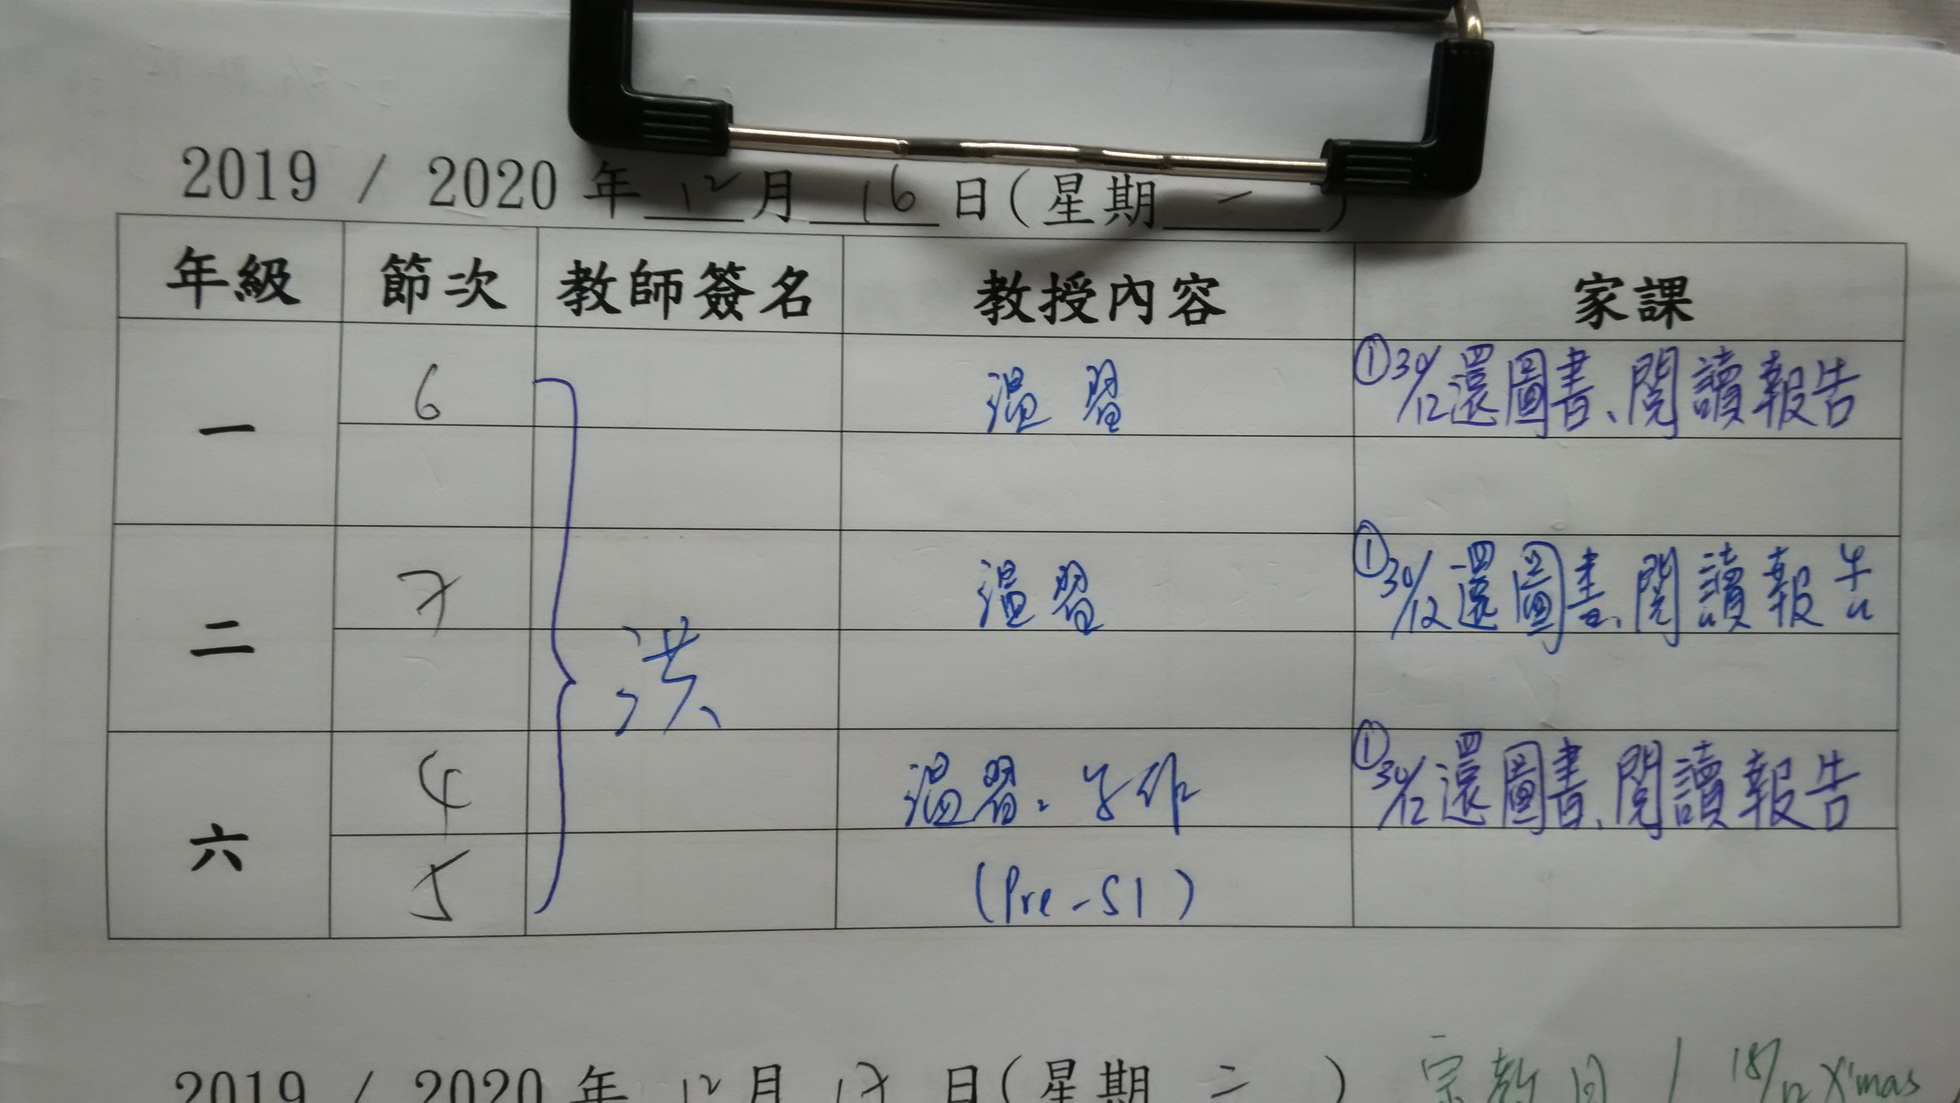 2019 / 2020 年 12 月 16 日(星期 一 )
年級 節次 教師簽名 教授內容 家課
一 6 温習 ①30/12還圖書、閱讀報告
二 7 温習 ①30/12還圖書、閱讀報告
洪
六 4 温習、写作 ①30/12還圖書、閱讀報告
5 (Pre-S1)
2019 / 2020 年 12 月 17 日(星期 二 ) 宗教日 / 18/12 X'mas